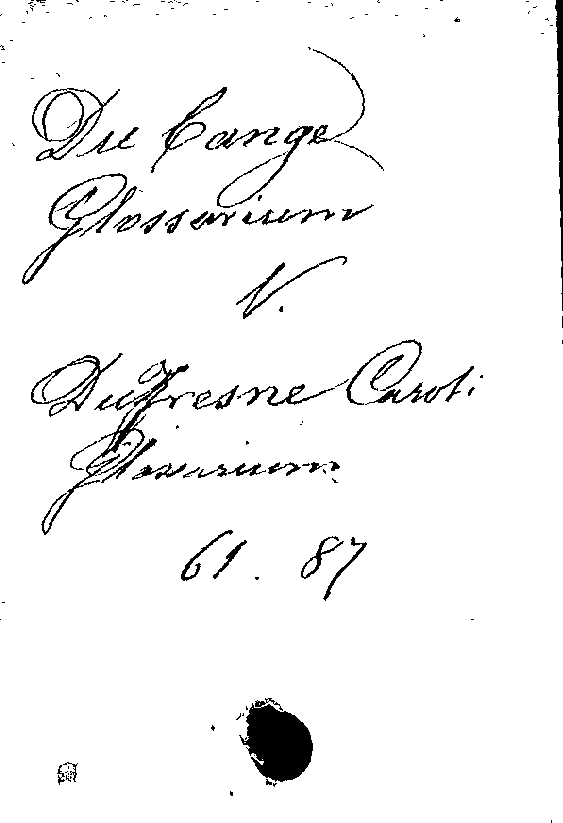 Du Cange
Glossarium
V.
Dufresne Caroli
Glossarium
61. 87